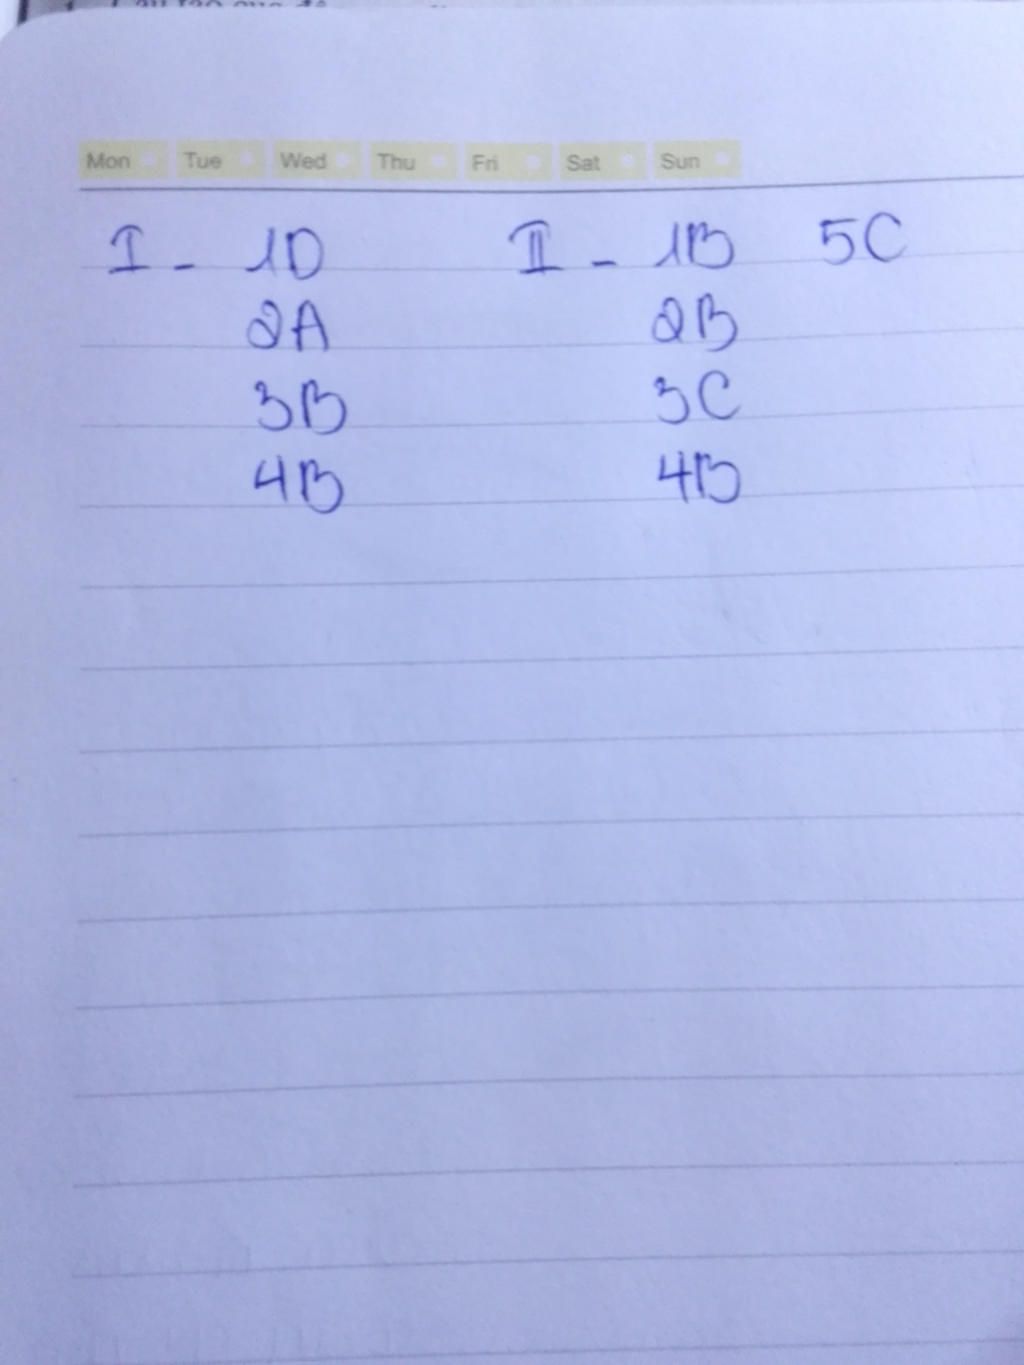 Mon Tue Wed Thu Fri Sat Sun
I - 1D II - 1B 5C
2A 2B
3B 3C
4B 4B